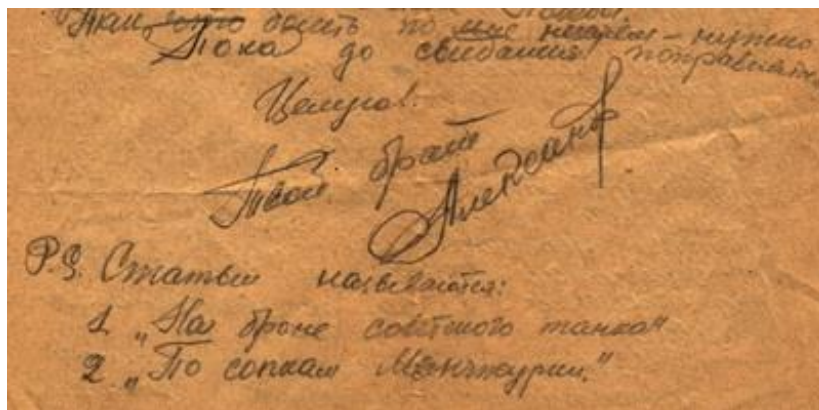 болеть по мне нечего – нужно
Пока до свидания. поправляться
Целую!
Твой брат
Александр
P.S. Статьи называются:
1. „На броне советского танка"
2. „По сопкам Манчжурии."